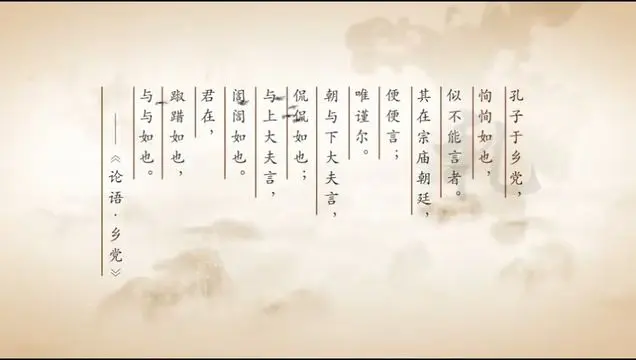 孔子于乡党，
恂恂如也，
似不能言者。
其在宗庙朝廷，
便便言；
唯谨尔。
朝与下大夫言，
侃侃如也；
与上大夫言，
訚訚如也。
君在，
踧踖如也，
与与如也。
——《论语·乡党》